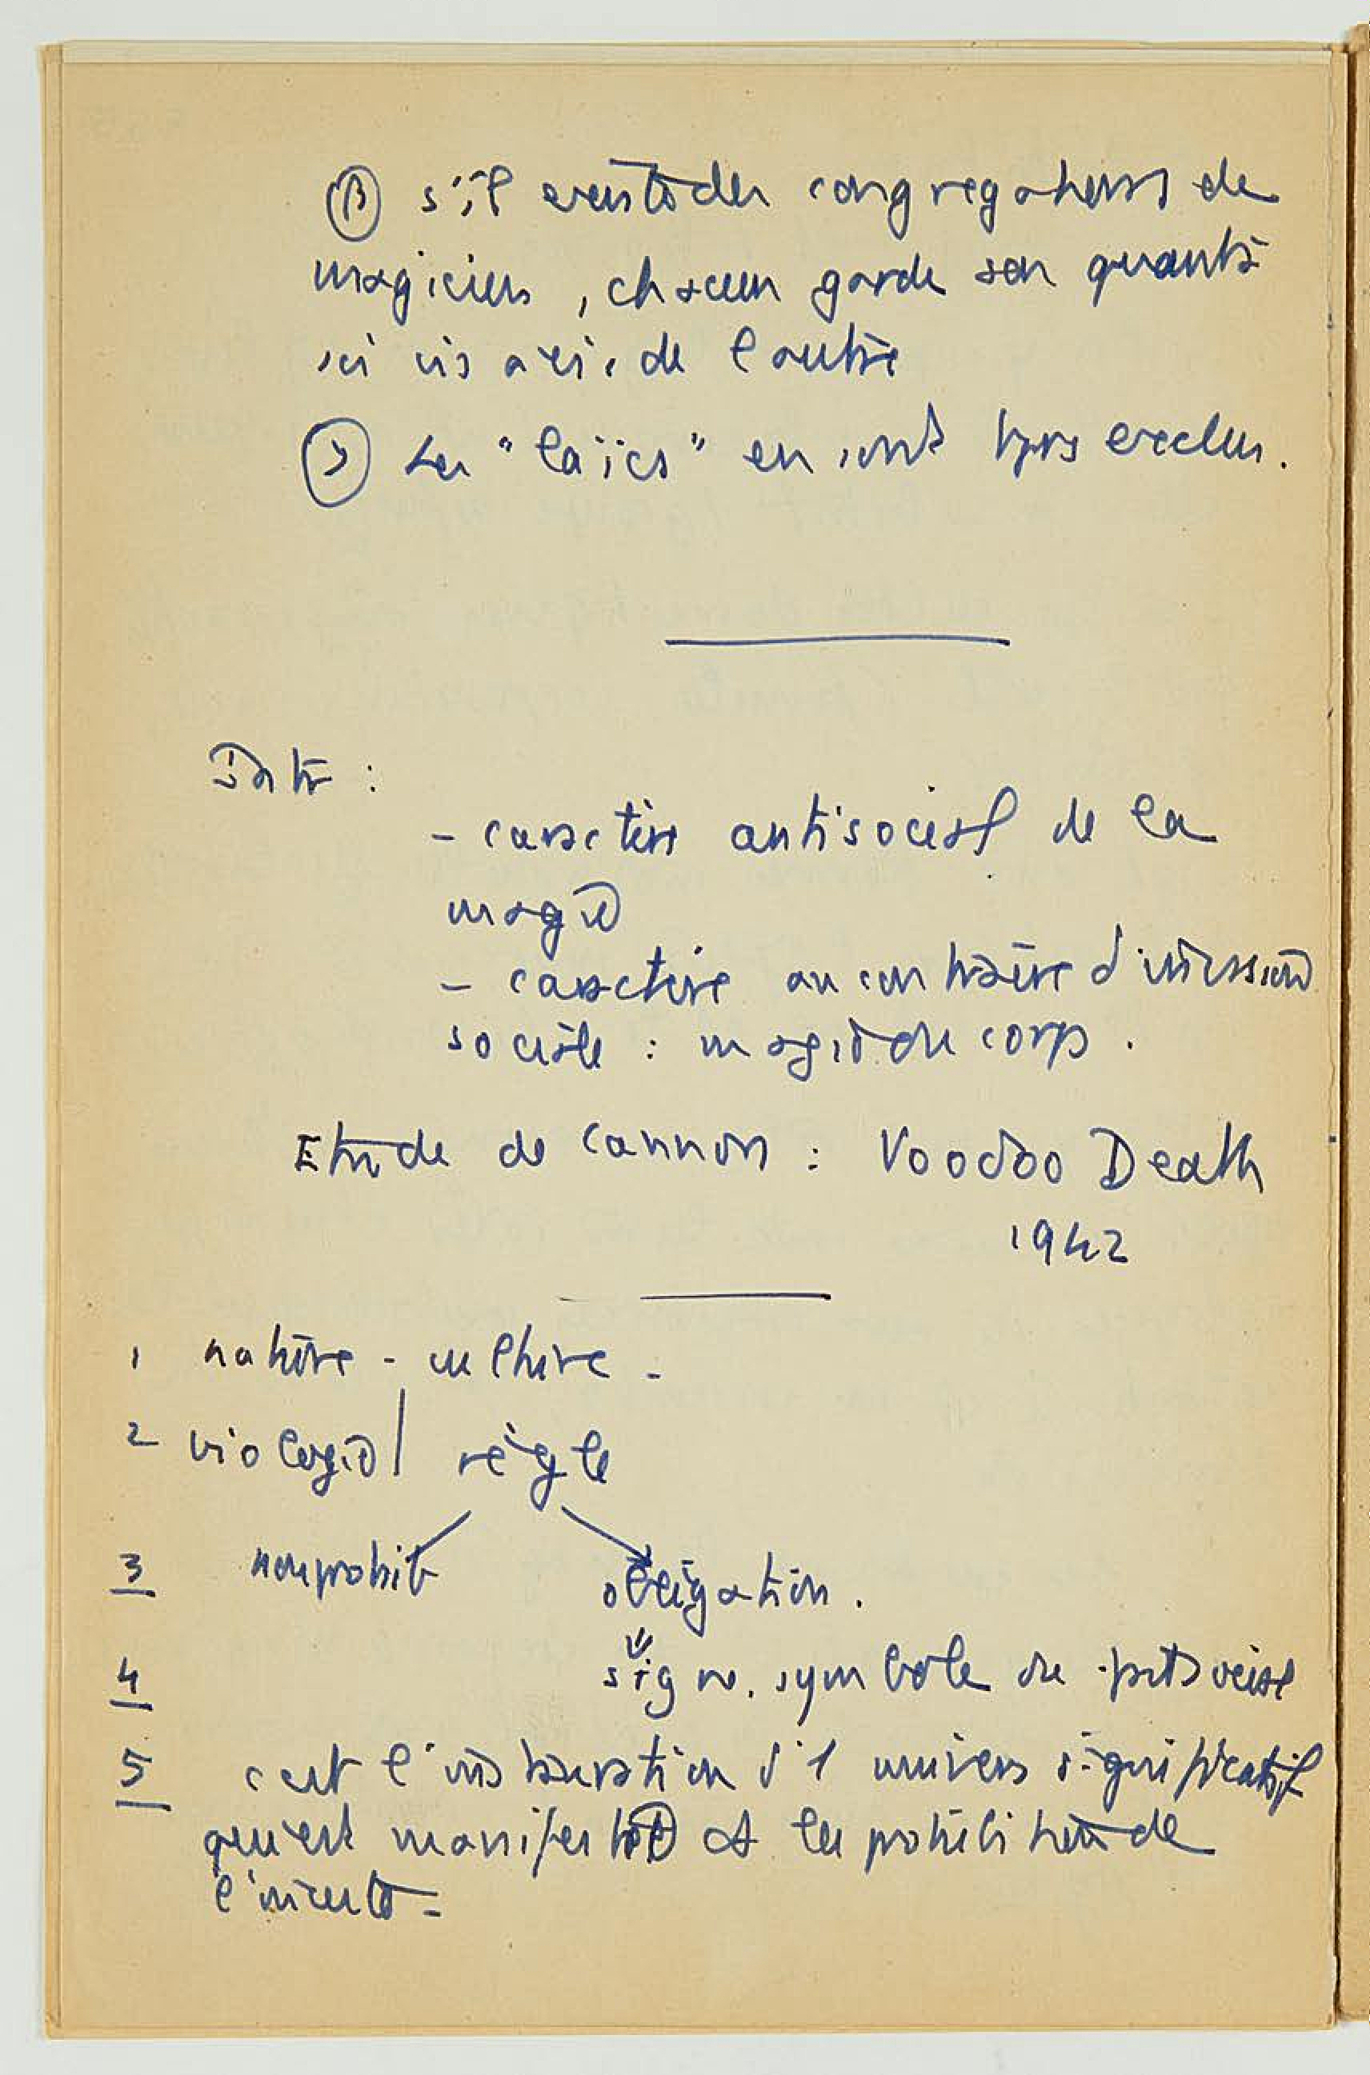 β s'il existe des congregations de
magiciens, chacun garde son quant à
soi vis à vis de l'autre
γ Les "laïcs" en sont tjrs exclus.
- caractère antisocial de la
magie
- caractère au contraire d'
sociale : magie du corps.
Etude de Cannon : Voodoo Death
1942
1 nature - culture -
2 biologie | règle
3 obligation.
4 signe. symbole de
5 c'est l'instauration d'1 univers significatif
qui est manifestée les prohibition de
l'inceste -